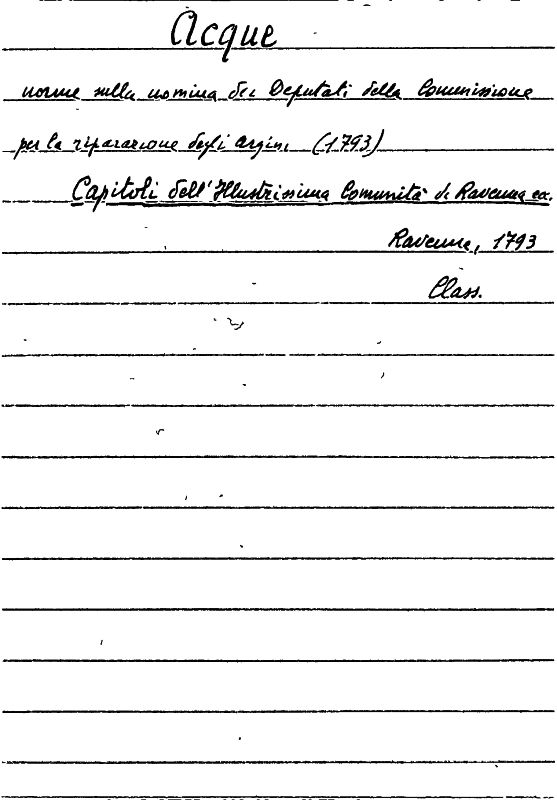 Acque
norme sulla nomina dei Deputati della Commissione
per la riparazione degli argini (1793)
Capitoli dell'Illustrissima Comunità di Ravenna ec.
Ravenna, 1793
Class.